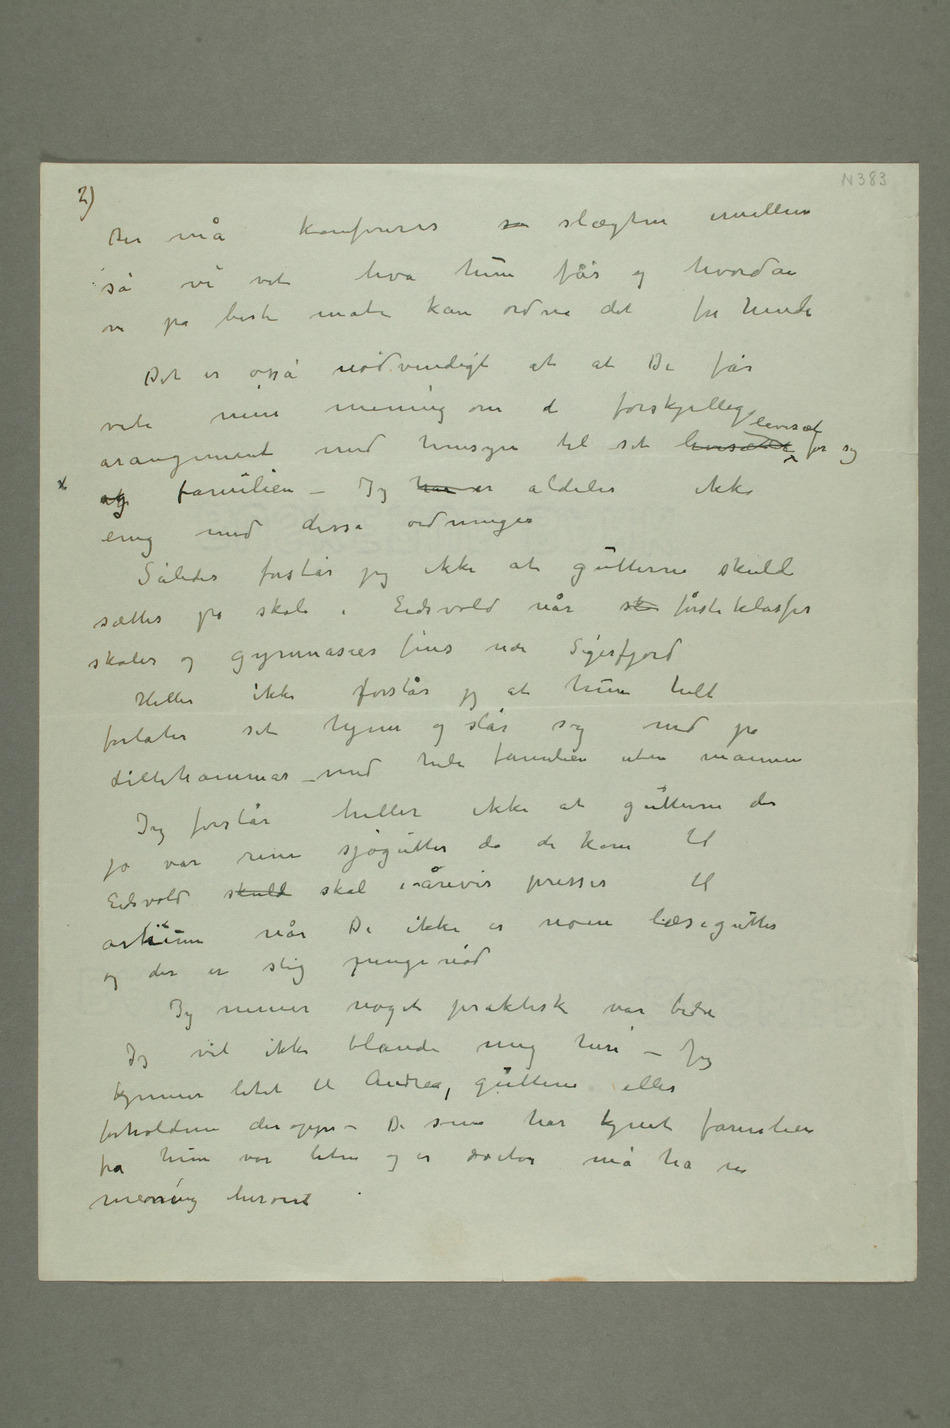 N 383
2)
Der må konfereres so slægten imellem
så vi vet hva hun får og hvordan
vi på beste måte kan ordne det for hende
Det er også nødvendigt at at De får
vite min mening om de forskjellige
arangement med hensyn til set levesæt for sig
og familien – Jeg har er aldeles ikke
enig med disse ordninger
Således forstår jeg ikke at gutterne skulde
sættes på skole i Eidsvold når sko förste klasses
skoler og gymnasier fins nær Sigerfjord
Heller ikke forstår jeg at hun helt
forlater set hjem og slår sig ned på
Lillehammer – med hele familien uten mannen
Jeg forstår heller ikke at gutterne der
jo var rene sjøgutter da de kom til
Eidsvold skulde skal i årevis presses til
artium når De ikke er noen læsegutter
og der er slig pengenød
Jeg mener noget praktisk var bedre
Jeg vil ikke blande mig heri – Jeg
kjenner litet til Andrea, gutterne eller
forholdene deroppe – De som har kjent familien
fra hun var liten og er doctor må ha en
mening herom